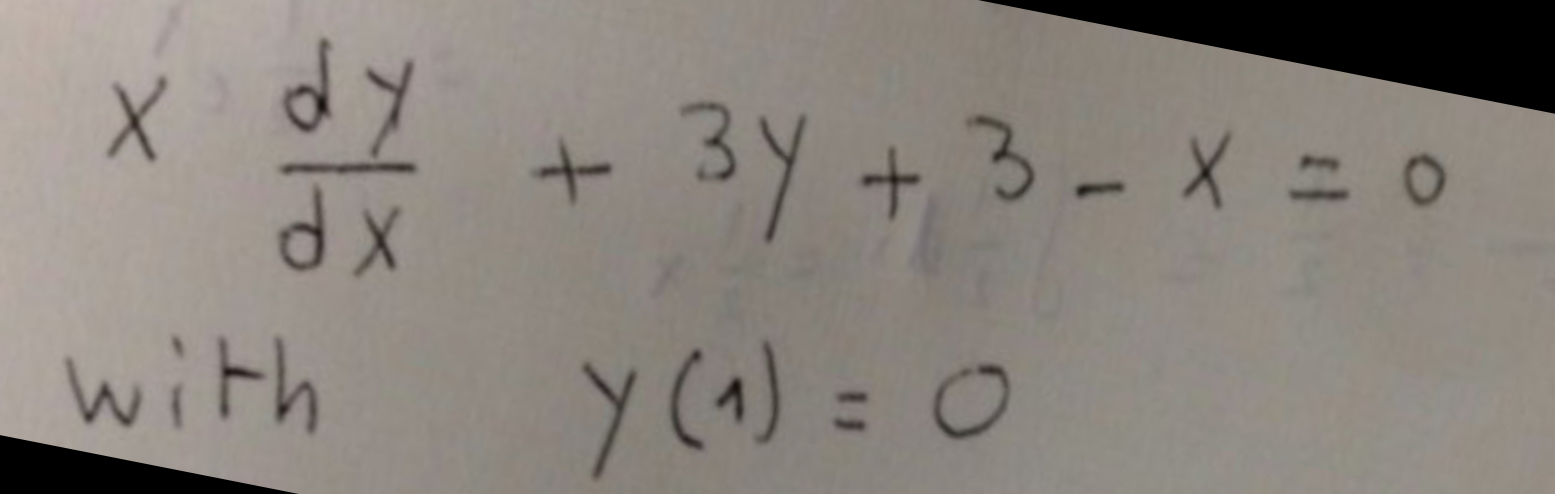 x dy/dx + 3y + 3 - x = 0
with y(1) = 0